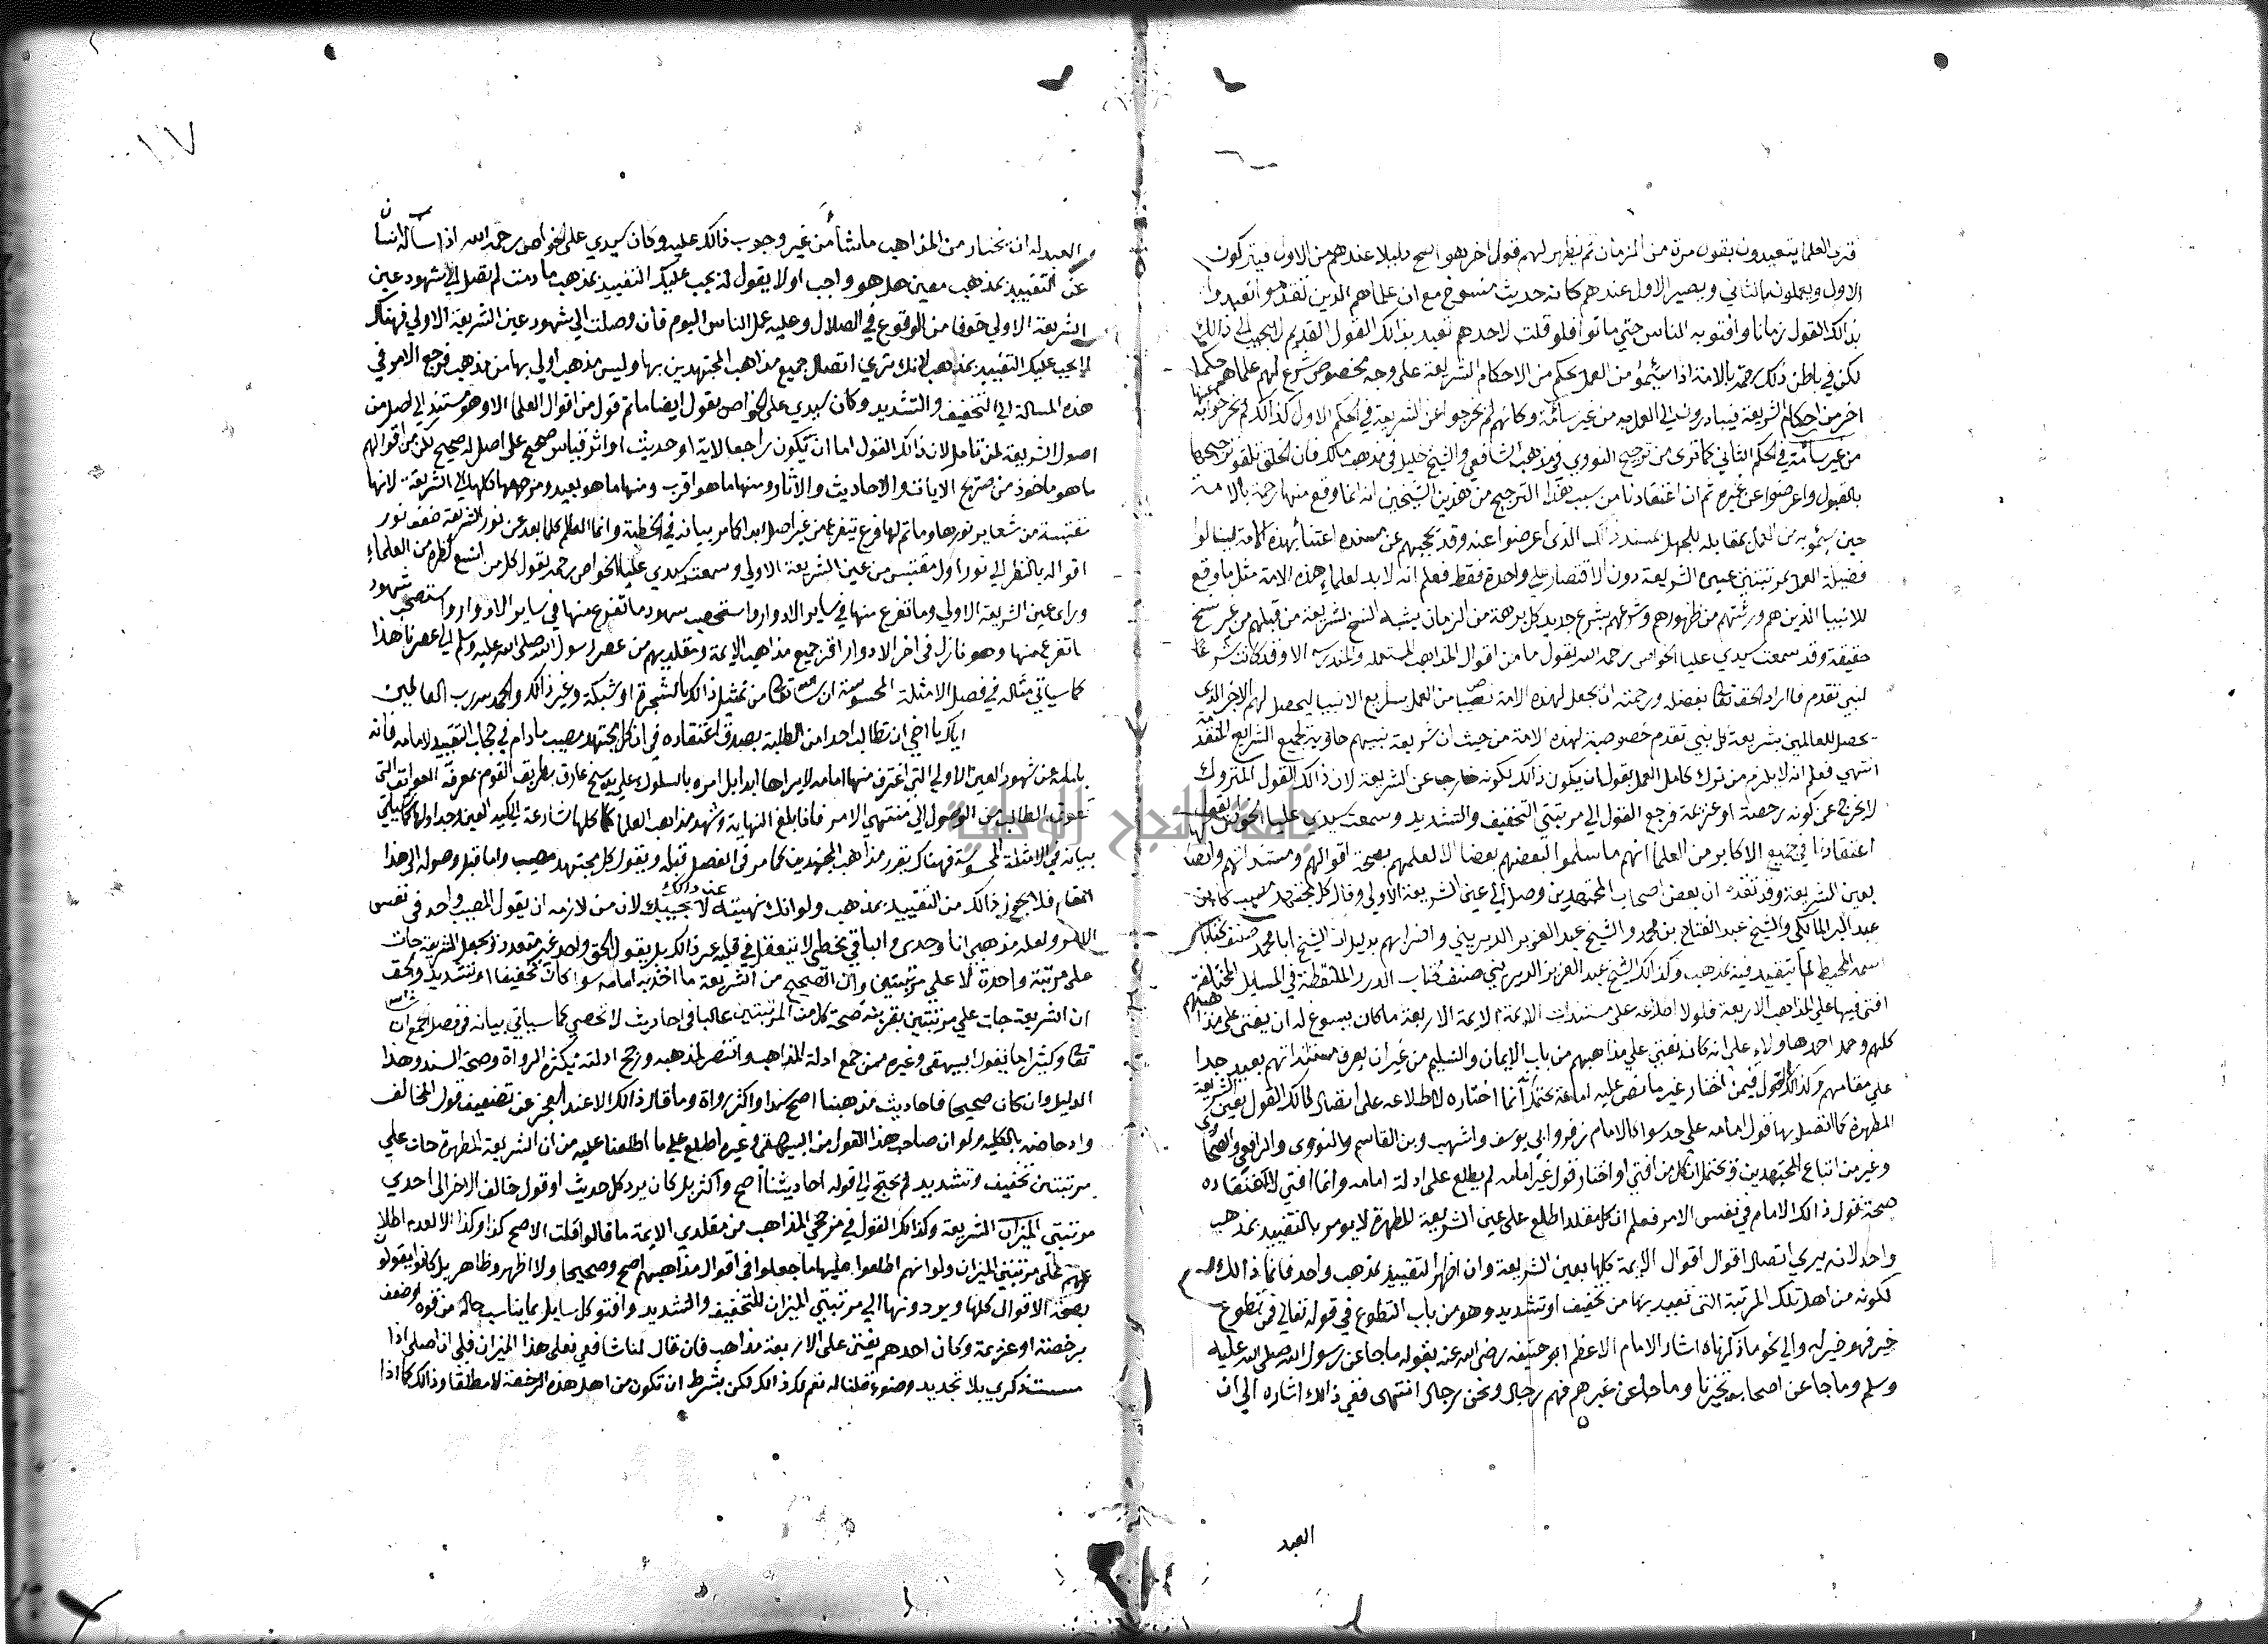 فترى العلما يتعبدون بقول مرة من الزمان ثم يظهر لهم قول اخر هو اصح دليلا عندهم من الاول فيتركون
الاول ويعملون بالثاني ويصير الاول عندهم كانه حديث منسوخ مع ان علماهم الذين تقدموا تعبدوا
بذالك القول زمانا وافتو به الناس حتي ماتوا فلو قلت لاحدهم تعبد بذالك القول القديم لا يجيب الي ذالك
لكن في باطن ذلك رحمة بالامة اذا سئموا من العمل بحكم من الاحكام الشريعة على وجه مخصوص شرع لهم علماهم حكما
اخر من احكام الشريعة فيبادرون الي العمل به من غير سآمة وكانهم لم يخرجوا عن الشريعة في الحكم الاول كذالك لم يخرجوا عنها
من غير سآمة في الحكم الثاني كما ترى من ترجيح النووي في مذهب الشافعي والشيخ خليل في مذهب مالك فان الخلق تلقو ترجيحهما
بالقبول واعرضوا عن غيره ثم ان اعتقادنا من سبب هذا الترجيح من هذين الشيخين انه انما وقع منهما رحمة بالامة
حين سئمو به من العمل بمقابله للجهل بمستند ذالك الذي اعرضوا عنه وقد يحجبهم عن مستنده اعتنا بهذه الامة لينالوا
فضيلة العمل بمرتبتين عين الشريعة دون الاقتصار علي واحدة فقط فعلم انه لا بد لعلماء هذه الامة مثل ما وقع
للانبيا الذين هم ورثتهم من ظهورهم وشرعهم بشرع جديد كل برهة من الزمان يشبه النسخ لشريعة من قبلهم من غير نسخ
حقيقة وقد سمعت سيدي عليا الخواص رحمه الله يقول ما من اقوال المذاهب المستعملة والمندرسه الا وقد كانت شرعا
لنبي تقدم فاراد الحق تعا بفضله ورحمته ان يجعل لهذه الامة نصيبا من العمل بشرايع الانبيا ليحصل لهم الاجر الذي
يحصل للعاملين بشريعة كل نبي تقدم خصوصية لهذه الامة من حيث ان شريعة نبيهم حاوية لجميع الشرايع المتقدمة
انتهي فعلم انه لا يلزم من ترك كامل العمل بقول ان يكون ذالك لكونه خارجا عن الشريعة لان ذالك القول المتروك
لا يخرج عن كونه رخصة او عزيمة فرجع القول الي مرتبتي التخفيف والتشديد وسمعت سيدي عليا الخواص يقول
اعتقادنا في جميع الاكابر من العلما انهم ما سلموا لبعضهم بعضا الا لعلمهم بصحة اقوالهم ومستنداتهم واتصالها
بعين الشريعة وقد تقدم ان بعض اصحاب المجتهدين وصل الي عين الشريعة الاولي وقال كل مجتهد مصيب كابن
عبد البر المالكي والشيخ عبد الفتاح بن محمد والشيخ عبد العزيز الديريني واضرابهم بدليل ان الشيخ ابا محمد صنف كتابا
اسمه المحيط لم يتقيد فيه بمذهب وكذالك الشيخ عبد العزيز الديريني صنف كتاب الدرر الملتقطة في المسايل المختلفة
افتى فيها علي المذاهب الاربعة فلولا اطلاعه على مستندات الايمة الاربعة ما كان يسوغ له ان يفتى على مذاهبهم
كلهم وحمل احد هاولاء على انه كان يفتي علي مذاهبهم من باب الايمان والتسليم من غير ان يعرف مستنداتهم بعيد جدا
علي مقامهم وكذالك القول فيمن اختار غير ما نص عليه امامه يحتمل انما اختاره لاطلاعه على اتصال ذالك القول بعين الشريعة
المطهرة كما اتصل بها قول امامه علي حد سوا كالامام زفر وابي يوسف واشهب وبن القاسم والنووى والرافعي والطحاوى
وغير من اتباع المجتهدين ويحتمل ان كل من افتي او اختار قول غير امامه لم يطلع على ادلة امامه وانما افتي لاعتقاده
صحة قول ذالك الامام في نفس الامر فعلم ان كل مقلد اطلع على عين الشريعة المطهرة لا يومر بالتقييد بمذهب
واحد لانه يري اتصال اقوال الايمة كلها بعين الشريعة وان اظهر التقييد بمذهب واحد فانما ذالك
لكونه من اهل تلك المرتبة التى تقيد بها من تخفيف او تشديد وهو من باب التطوع في قوله تعالي فمن تطوع
خير فهو خير له والي نحو ما ذكرناه اشار الامام الاعظم ابو حنيفه رضى الله عنه بقوله ما جا عن رسول الله صلى الله عليه
وسلم وما جا عن اصحابه تخيرنا وما جا عن غيرهم فهم رجال ونحن رجال انتهى ففي ذالك اشاره الي ان
العبد
١٠٧
العبد له ان يختار من المذاهب ما شأ من غير وجوب ذالك عليه وكان سيدي على الخواص رحمه الله اذا سأله انسان
عن التقييد بمذهب معين هل هو واجب او لا يقول له يجب عليك التقييد بمذهب ما دمت لم تصل الي شهود عين
الشريعة الاولي خوفا من الوقوع في الضلال وعليه عمل الناس اليوم فان وصلت الي شهود عين الشريعة الاولي فهناك
لا يجب عليك التقييد بمذهب لانك تري اتصال جميع مذاهب المجتهدين بها وليس مذهب اولي بها من مذهب فرجع الامر في
هذه المسالة الي التخفيف والتشديد وكان سيدي على الخواص يقول ايضا ما ثم قول من اقوال العلما الا وهو مستند الي اصل من
اصول الشريعة لمن تامل لان ذالك القول اما ان يكون راجعا لاية او حديث او اثر او قياس صحيح على اصل له صحيح لكن من اقوالهم
ما هو ماخوذ من صريح الايات والاحاديث والاثار ومنها ما هو اقرب ومنها ما هو بعيد ومرجعها كلها الي الشريعة لانها
مقتبسة من شعاير نورها وما ثم لها فرع يتفرع من غير اصل ابدا كما مر بيانه في الخطبة وانما العالم كلما بعد عن نور الشريعة ضعف نور
اقواله بالنظر الي نور اول مقتبس من عين الشريعة الاولي وسمعت سيدي عليا الخواص رحمه يقول كل من اتسع نظره من العلماء
وراى عين الشريعة الاولي وما تفرع منها في ساير الادوار واستصحب شهود ما تفرع منها في ساير الادوار واستصحب شهود
ما تفرع منها وهو نازل في اخر الادوار اقر جميع مذاهب الايمة ومقلديهم من عصر رسول الله صلى الله عليه وسلم الي عصرنا هذا
كما سياتي مثاله في فصل الامثلة المحسوسة ان شا تعا من تمثيل ذالك بالشجرة او شبكة وغير ذالك والحمد لله رب العالمين
اياك يا اخي ان تطالب احدا من الطلبة بصدق اعتقاده في ان كل مجتهد مصيب ما دام في حجاب التقييد لامامه فانه
عن شهود العين الاولي التي اغترف منها امامه لا يراها ابدا بل امره بالسلوك علي يد شيخ عارف بطريق القوم بمعرفة العوايق التى
تعوق الطالب من الوصول الي منتهي الامر فاذا بلغ النهاية وشهد مذاهب العلما كلها شارعة اليك العين وجداولها كما سياتي
بيانه في الامثلة المحسوسة فهناك يقرر مذاهب المجتهدين كما مر في الفصل قبله ويقول كل مجتهد مصيب واما قبل وصوله الى هذا
المقام فلا يجوز ذالك من التقييد بمذهب ولو انك نهيته عن ذالك لا يجيبك لان من لازمه ان يقول المصيب واحد في نفس
الامر ولعله مذهبي انا وحدى والباقي مخطى لا يتعقل في قلبه غير ذالك بل يقول الحق واحد غير متعدد ويجعل الشريعة جات
على مرتبة واحدة لا على مرتبتين وان الصحيح من الشريعة ما اخذ به امامه سوا كان تخفيفا او تشديدا والحق
ان الشريعة جات علي مرتبتين بقرينة صحة كل من المرتبتين غالبا في احاديث لا تحصي كما سياتي بيانه في فصل الجمع ان شا الله
تعا وكثيرا ما يقول البيهقى وغيره ممن جمع ادلة المذاهب وانتصر لمذهبه ورجح ادلته بكثرة الرواة وصحة السند وهذا
الدليل وان كان صحيحا فاحاديث مذهبنا اصح سندا واكثر رواة وما قال ذالك الا عند العجز عن تضعيف قول المخالف
وادحاضه بالكليه ولو ان صاحب هذا القول من البيهقى وغيره اطلع علي ما اطلعنا عليه من ان الشريعة المطهرة جات علي
مرتبتين تخفيف وتشديد لم يحتج الي قوله احاديثنا اصح واكثر بل كان يرد كل حديث او قول خالف الاخر الى احدي
مرتبتى الميزان الشريعة وكذالك القول في مرجحي المذاهب من مقلدي الايمة ما قالوا قلت الاصح كذا وكذا الا لعدم اطلا
عهم على مرتبتى الميزان ولو انهم اطلعوا عليها ما جعلوا في اقوال مذاهبهم اصح وصحيحا ولا اظهر وظاهر بل كانوا يقولون
بصحة الاقوال كلها ويردونها الي مرتبتي الميزان للتخفيف والتشديد وافتو كل سايل بما يناسب حاله من قوة او ضعف
برخصة او عزيمة وكان احدهم يفتى على الاربعة مذاهب فان قال لنا شافعي فعلى هذا الميزان فلى ان اصلى اذا
مسست ذكري بلا تجديد وضوء قلنا له نعم لك ذالك لكن بشرط ان تكون من اهل هذه الرخصة لا مطلقا وذالك كما اذا